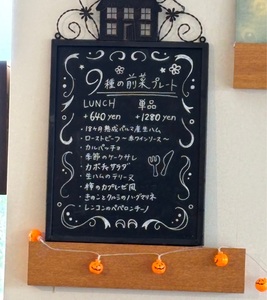 9種の前菜プレート
LUNCH 単品
+640yen +1280yen
・18ヶ月熟成パルマ産生ハム
・ローストビーフ〜赤ワインソース〜
・カルパッチョ
・季節のケークサレ
・カボチャサラダ
・生ハムのテリーヌ
・柿のカプレーゼ風
・きのことクルミのハーブマリネ
・レンコンのペペロンチーノ